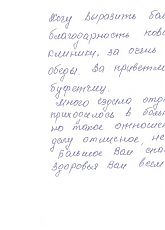 Хочу выразить бол
благодарность пов
клиники, за очень
обеды. За приветли
буфетчиц.
Много ездила отд
приходилось в боль
но такое отношен
делу отличное, не
Большое Вам спа
Здоровья Вам всем